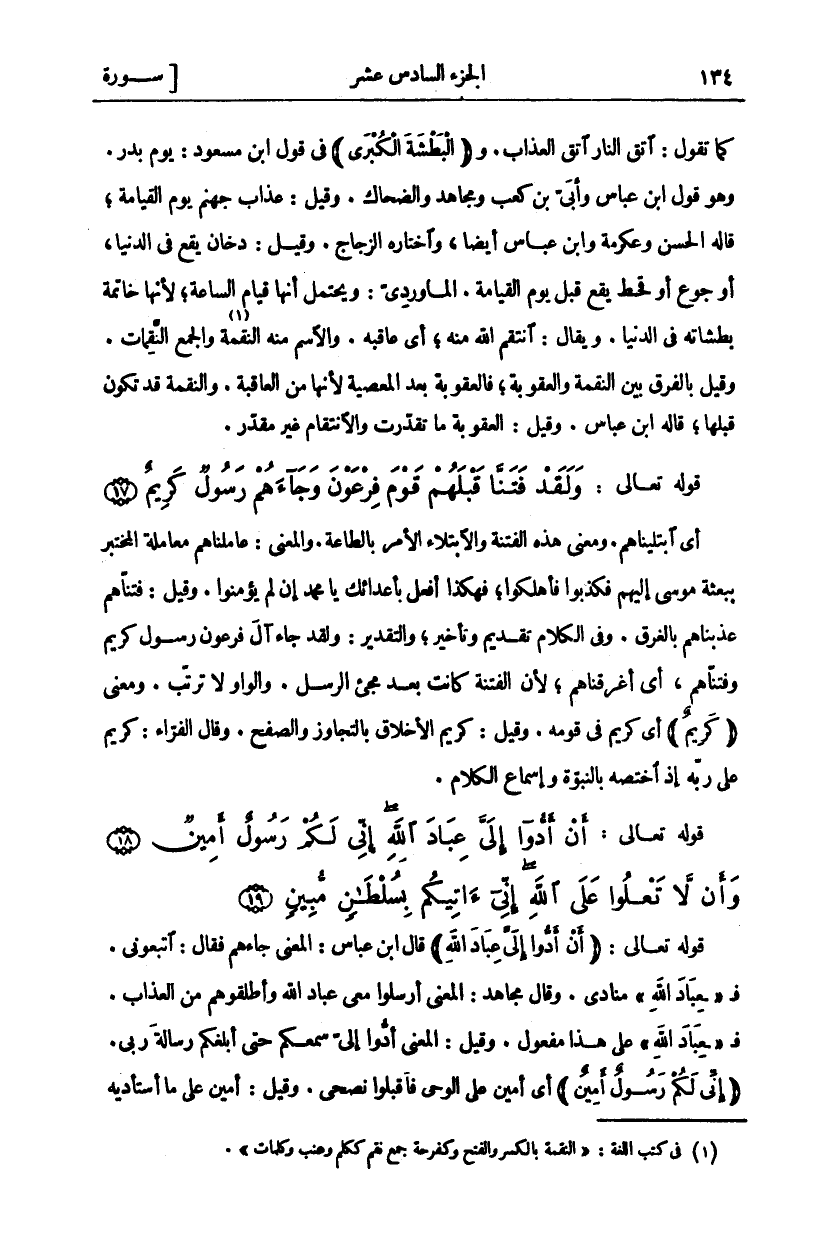 ١٣٤ الجزء السادس عشر [ ســورة
كما تقول : ٱتق النار ٱتق العذاب. و ﴿ الْبَطْشَةَ الْكُبْرَى ﴾ فى قول ابن مسعود : يوم بدر .
وهو قول ابن عباس وأبىّ بن كعب ومجاهد والضحاك . وقيل : عذاب جهنم يوم القيامة ؛
قاله الحسن وعكرمة وابن عبـاس أيضا ، وٱختاره الزجاج . وقيـل : دخان يقع فى الدنيا ،
أو جوع أو قحط يقع قبل يوم القيامة . المـاوردىّ : ويحتمل أنها قيام الساعة؛ لأنها خاتمة
بطشاته فى الدنيا . ويقال : ٱنتقم الله منه ؛ أى عاقبه . والٱسم منه النقمة (١) والجمع النَّقِمات .
وقيل بالفرق بين النقمة والعقوبة ؛ فالعقوبة بعد المعصية لأنها من العاقبة . والنقمة قد تكون
قبلها ؛ قاله ابن عباس . وقيل : العقوبة ما تقدّرت والٱنتقام غير مقدّر .
قوله تعـالى : وَلَقَدْ فَتَنَّا قَبْلَهُمْ قَوْمَ فِرْعَوْنَ وَجَآءَهُمْ رَسُولٌ كَرِيمٌ ١٧
أى ٱبتليناهم. ومعنى هذه الفتنة والٱبتلاء الأمر بالطاعة. والمعنى : عاملناهم معاملة المختبر
ببعثة موسى إليهم فكذبوا فأهلكوا؛ فهكذا أفعل بأعدائك يا محمد إن لم يؤمنوا . وقيل : فتنّاهم
عذبناهم بالغرق . وفى الكلام تقـديم وتأخير ؛ والتقدير : ولقد جاء آلَ فرعون رسـول كريم
وفتنّاهم ، أى أغرقناهم ؛ لأن الفتنة كانت بعـد مجئ الرسـل . والواو لا ترتّب . ومعنى
﴿ كَرِيمٌ ﴾ أى كريم فى قومه . وقيل : كريم الأخلاق بالتجاوز والصفح . وقال الفرّاء : كريم
على ربّه إذ ٱختصه بالنبوّة وإسماع الكلام .
قوله تعـالى : أَنْ أَدُّوٓا إِلَىَّ عِبَادَ ٱللَّهِ ۖ إِنِّى لَكُمْ رَسُولٌ أَمِينٌ ١٨
وَأَن لَّا تَعْلُوا عَلَى ٱللَّهِ ۖ إِنِّىٓ ءَاتِيكُم بِسُلْطَـٰنٍ مُّبِينٍ ١٩
قوله تعـالى : ﴿ أَنْ أَدُّوا إِلَىَّ عِبَادَ اللهِ ﴾ قال ابن عباس : المعنى جاءهم فقال : ٱتبعونى .
فـ « عِبَادَ اللهِ » منادى . وقال مجاهد : المعنى أرسلوا معى عباد الله وأطلقوهم من العذاب .
فـ « عِبَادَ اللهِ » على هـذا مفعول . وقيل : المعنى أدُّوا إلىّ سمعـكم حتى أبلغكم رسالة ربى.
﴿ إِنِّى لَكُمْ رَسُـولٌ أَمِينٌ ﴾ أى أمين على الوحى فٱقبلوا نصحى . وقيل : أمين على ما أستأديه
(١) فى كتب اللغة : « النقمة بالكسر والفتح وكفرحة جمع نقم ككلم وعنب وكلمات » .